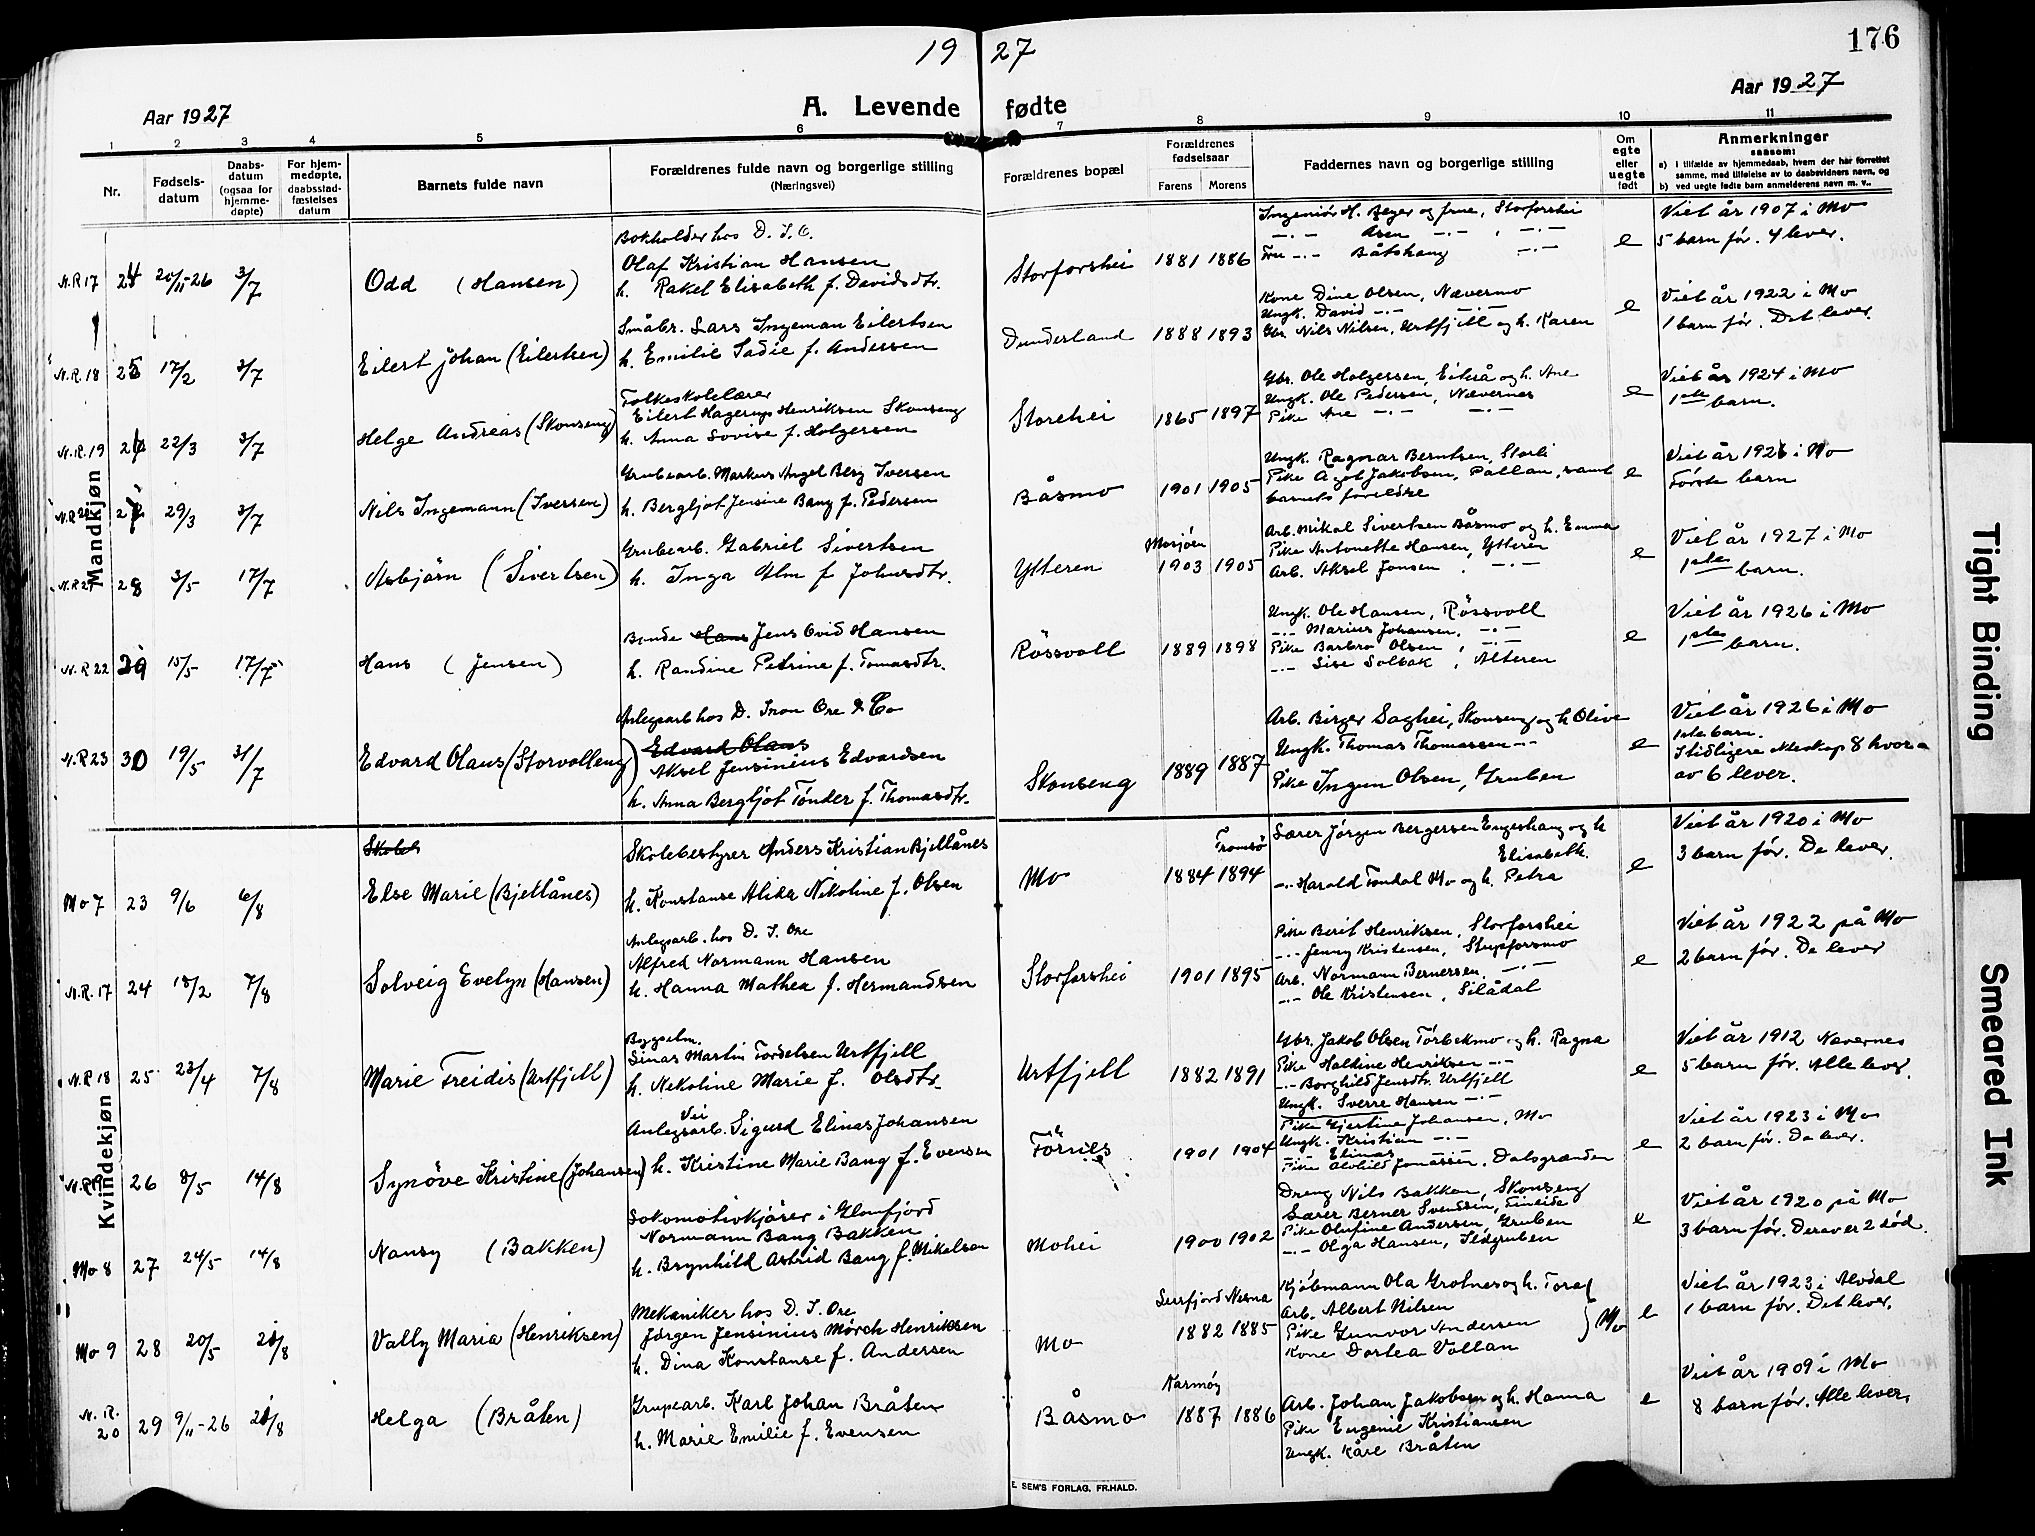 19 27
176
Aar 1927
A. Levende fødte
Aar 1927
1 2 3 4 5 6 7 8 9 10 11
Nr.
Fødsels-
datum
Daabs-
datum
(ogsaa for
hjemme-
døpte)
For hjem-
medøpte,
daabsstad-
fæstelses
datum
Barnets fulde navn
Forældrenes fulde navn og borgerlige stilling
(Næringsvei)
Forældrenes bopæl
Forældrenes
fødselsaar
Farens Morens
Faddernes navn og borgerlige stilling
Om
egte
eller
uegte
født
Anmerkninger
saasom:
a) i tilfælde av hjemmedaab, hvem der har forrettet
samme, med tilføielse av to daabsvidners navn, og
b) ved uegte fødte barn anmelderens navn m. v..
Mandkjøn
N.R 17 24 20/11-26 3/7
Odd (Hansen)
Bokholder hos D. I. O.
Olaf Kristian Hansen
h. Rakel Elisabeth f. Davidsdtr.
Storforshei 1881 1886
Ingeniør H. Beyer og frue, Storforshei
-.- Asen -.- , -.-
Fru -.- Båtshaug -.-
e
Viet år 1907 i Mo
5 barn før. 4 lever.
N.R. 18 25 17/2 3/7
Eilert Johan (Eilertsen)
Småbr. Lars Ingeman Eilertsen
h. Emilie Sadie f. Andersen
Dunderland 1888 1893
Kone Dine Olsen, Nævermo
Ungk. David -.- -.-
Gbr. Nils Nilsen, Urtfjell og h. Karen
e
Viet år 1922 i Mo
1 barn før. Det lever.
N.R. 19 26 22/3 3/7
Helge Andreas (Skonseng)
Folkeskolelærer
Eilert Hagerup Henriksen Skonseng
h. Anna Lovise f. Holgersen
Storehei 1865 1897
Gbr. Ole Holgersen, Eiterå og h. Ane
Ungk. Ole Pedersen, Nævernes
Pike Ane -.- -.-
e
Viet år 1924 i Mo
1ste barn.
N.R. 20 27 29/3 3/7
Nils Ingemann (Iversen)
Grubearb. Markus Angel Berg Iversen
h. Bergljot Jensine Bang f. Pedersen
Båsmo 1901 1905
Ungk. Ragnar Berntsen, Storli
Pike Agot Jakobsen, Pallan, samt
barnets foreldre
e
Viet år 1926 i Mo
Første barn
N.R 21 28 3/5 17/7
Asbjørn (Sivertsen)
Grubearb. Gabriel Sivertsen
h. Inga Alm f. Johnsdtr.
Ytteren
Mosjøen
1903 1905
Arb. Mikal Sivertsen Båsmo og h. Emma
Pike Antonette Hansen, Ytteren
Arb. Aksel Jonsen , -.-
e
Viet år 1927 i Mo
1ste barn.
N.R 22 29 15/5 17/7
Hans (Jensen)
Bonde Hans Jens Ovid Hansen
h. Randine Petrine f. Tomasdtr.
Røssvoll 1889 1898
Ungk. Ole Hansen, Røssvoll
-.- Marius Johansen, -.-
Pike Barbro Olsen , -.-
-.- Sise Solbak , Alteren
e
Viet år 1926 i Mo
1ste barn.
N.R 23 30 19/5 31/7
Edvard Olaus (Storvolleng)
Anlegsarb hos D. Iron Ore & Co
Edvard Olaus
Aksel Jensinius Edvardsen
h. Anna Bergljot Tønder f. Thomasdtr.
Skonseng 1889 1887
Arb. Birger Saghei, Skonseng og h Olive
Ungk. Thomas Thomassen -.-
Pike Ingun Olsen, Gruben
e
Viet år 1926 i Mo
1ste barn.
I tidligere ekteskap 8 hvor
av 6 lever.
Kvindekjøn
Mo 7 23 9/6 6/8
Skoleb
Else Marie (Bjellånes)
Skolebestyrer Anders Kristian Bjellånes
h. Konstanse Alida Nikoline f. Olsen
Mo
Tromsø
1884 1894
Lærer Jørgen Bergersen Engeshaug og h
Elisabeth.
-.- Harald Tondal Mo og h. Petra
e
Viet år 1920 i Mo
3 barn før. De lever.
N.R. 17 24 18/2 7/8
Solveig Evelyn (Hansen)
Anlegsarb. hos D. I. Ore
Alfred Normann Hansen
h. Hanna Mathea f. Hermandsen
Storforshei 1901 1895
Pike Berit Henriksen, Storforshei
-.- Jenny Kristensen, Stupforsmo
Arb. Normann Bernersen, -.-
-.- Ole Kristensen, Silådal
e
Viet år 1922 på Mo
2 barn før. De lever
N.R 18 25 23/4 7/8
Marie Freidis (Urtfjell)
Bygselm.
Einar Martin Tordelsen Urtfjell
h. Nekoline Marie f. Olsdtr.
Urtfjell 1882 1891
Gbr. Jakob Olsen Tørbekmo og h. Ragna
Pike Haldine Henriksen -.-
-.- Borghild Jensdtr. Urtfjell
Ungk. Sverre Hansen -.-
e
Viet år 1912 Nævernes
5 barn før. Alle lever.
N.R 19 26 8/5 14/8
Synøve Kristine (Johansen)
Vei
Anlegsarb. Sigurd Elinas Johansen
h. Kristine Marie Bang f. Evensen
1901 1904
Pike Gjertine Johansen, Mo
Ungk. Kristian -.-
-.- Elinas
Pike Alvhild Jonassen. Dalsgrenden
e
Viet år 1923 i Mo
2 barn før. De lever.
Mo 8 27 24/5 14/8
Nansy (Bakken)
Lokomotivkjører i Glomfjord
Normann Bang Bakken
h. Brynhild Astrid Bang f. Mikelsen
Mohei 1900 1902
Dreng Nils Bakken, Skonseng
Lærer Berner Svendsen, Fineide
Pike Olufine Andersen, Gruben
-.- Olga Hansen, Ildgruben
e
Viet år 1920 på Mo
3 barn før. Derav er 2 død.
Mo 9 28 20/5 21/8
Vally Maria (Henriksen)
Mekaniker hos D. I. Ore
Jørgen Jensinius Mørch Henriksen
h. Dina Konstanse f. Andersen
Mo
Leirfjord Nesna
1882 1885
Kjøbmann Ola Grotnes og h. Tora
Arb. Albert Nilsen
Pike Gunvor Andersen
Kone Dortea Vollan
} Mo
e
Viet år 1923 i Alvdal
1 barn før. Det lever.
N. R. 20 29 9/11-26 21/8
Helga (Bråten)
Grupearb. Karl Johan Bråten
h. Marie Emilie f. Evensen
Båsmo
Karmøy
1887 1886
Arb. Johan Jakobsen og h. Hanna
Pike Eugenie Kristiansen
Ungk. Kåre Bråten
e
Viet år 1909 i Mo
8 barn før. Alle lever.
E. SEM'S FORLAG, FR.HALD.
Tight Binding
Smeared Ink